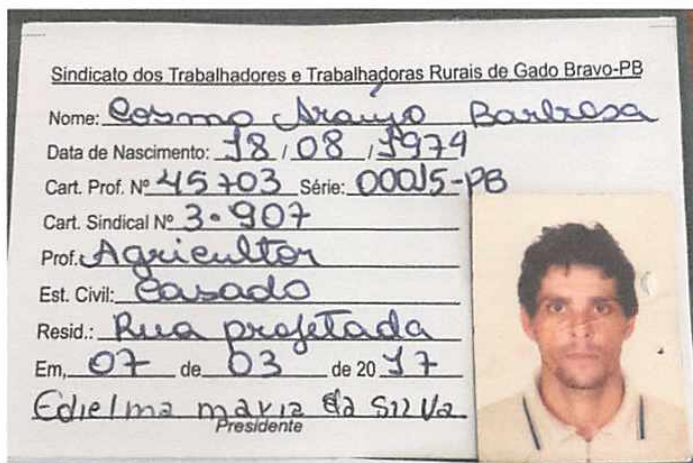 Sindicato dos Trabalhadores e Trabalhadoras Rurais de Gado Bravo-PB
Nome: Cosmo Araujo Barbosa
Data de Nascimento: 18 / 08 / 1974
Cart. Prof. Nº 45703 Série: 00015-PB
Cart. Sindical Nº 3.907
Prof. Agricultor
Est. Civil: Casado
Resid.: Rua projetada
Em, 07 de 03 de 20 17
Edielma maria da Silva
Presidente